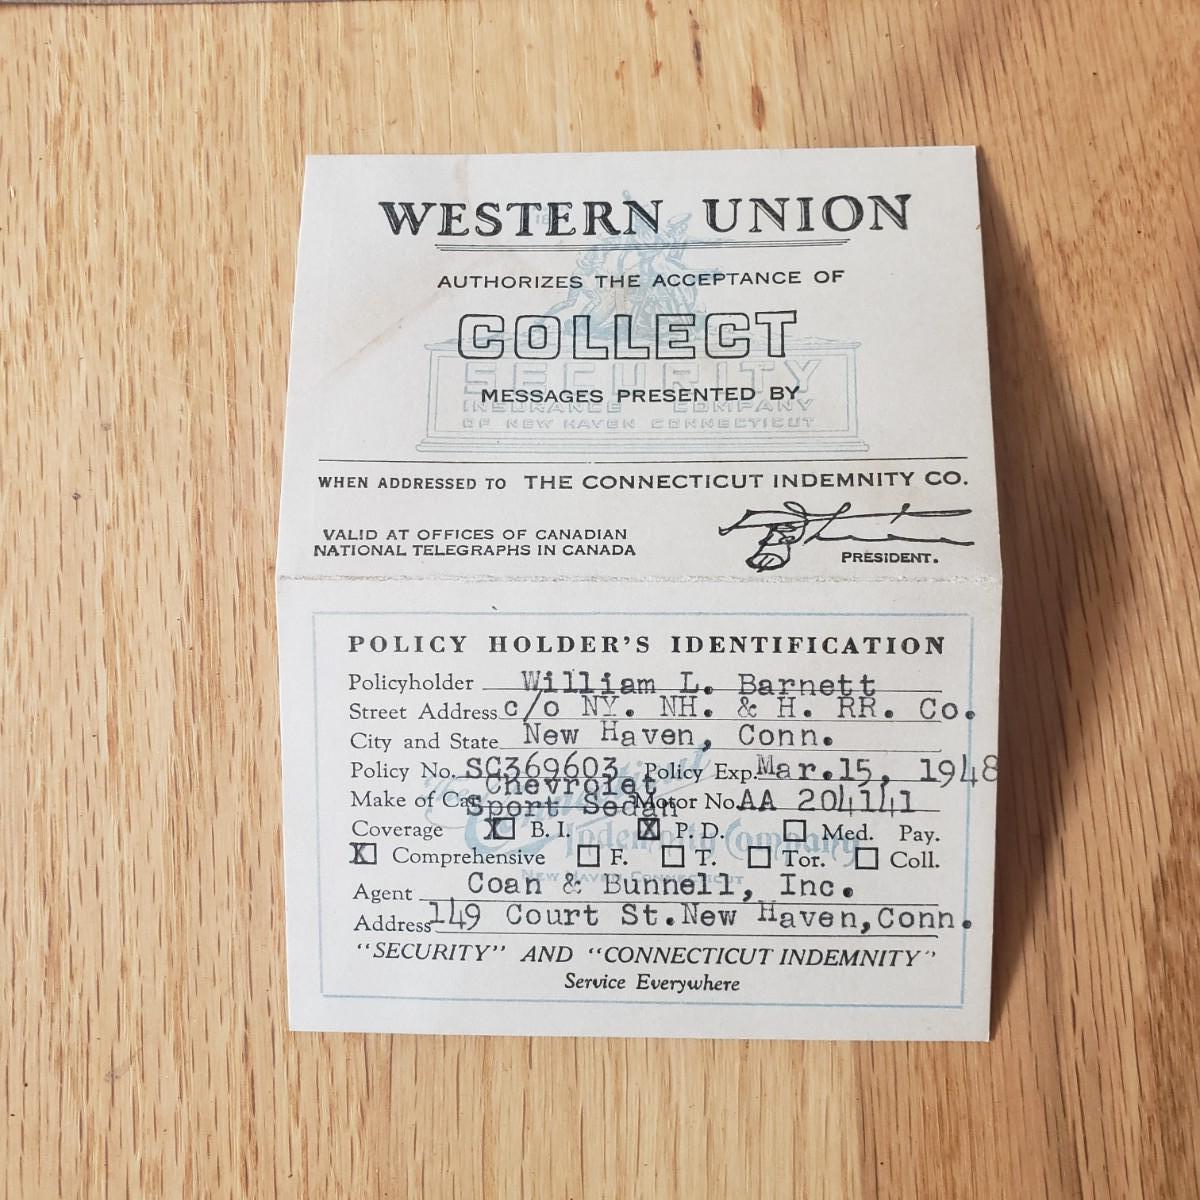 WESTERN UNION
AUTHORIZES THE ACCEPTANCE OF
COLLECT
SECURITY
MESSAGES PRESENTED BY
INSURANCE COMPANY
OF NEW HAVEN CONNECTICUT
WHEN ADDRESSED TO THE CONNECTICUT INDEMNITY CO.
VALID AT OFFICES OF CANADIAN
NATIONAL TELEGRAPHS IN CANADA
PRESIDENT.
POLICY HOLDER'S IDENTIFICATION
Policyholder William L. Barnett
Street Address c/o NY. NH. & H. RR. Co.
City and State New Haven, Conn.
Policy No. SC369603 Policy Exp. Mar.15, 1948
Chevrolet
Make of Car Sport Sedan Motor No. AA 204141
Coverage X B. I. X P. D. Med. Pay.
X Comprehensive F. T. Tor. Coll.
Indemnity Company
NEW HAVEN CONNECTICUT
Agent Coan & Bunnell, Inc.
Address 149 Court St.New Haven,Conn.
"SECURITY" AND "CONNECTICUT INDEMNITY"
Service Everywhere